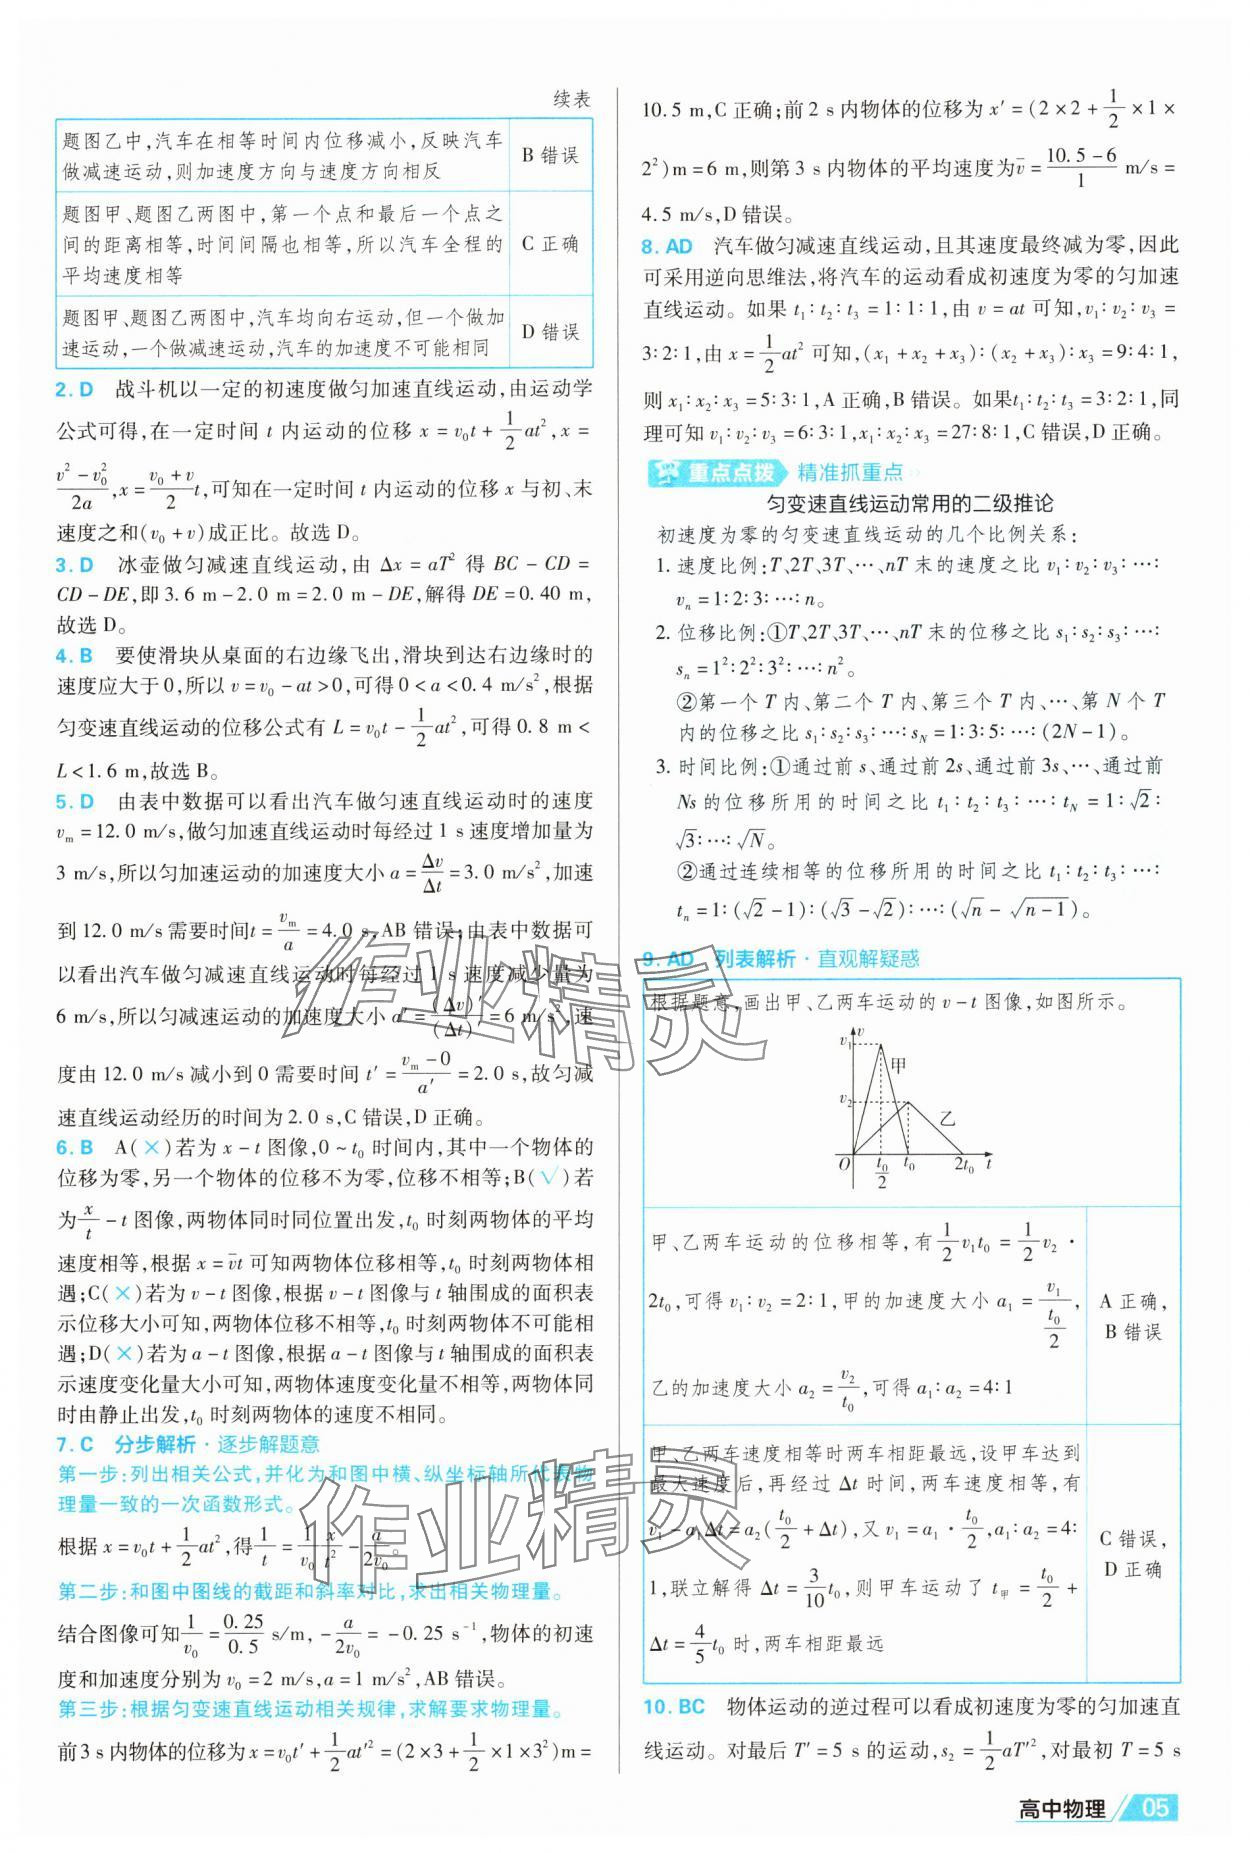 续表
题图乙中,汽车在相等时间内位移减小,反映汽车做减速运动,则加速度方向与速度方向相反
B 错误
题图甲、题图乙两图中,第一个点和最后一个点之间的距离相等,时间间隔也相等,所以汽车全程的平均速度相等
C 正确
题图甲、题图乙两图中,汽车均向右运动,但一个做加速运动,一个做减速运动,汽车的加速度不可能相同
D 错误
2. D 战斗机以一定的初速度做匀加速直线运动,由运动学
公式可得,在一定时间 t 内运动的位移 x = v₀t + 1/2 at², x =
(v² - v₀²)/2a, x = (v₀ + v)/2 t,可知在一定时间 t 内运动的位移 x 与初、末
速度之和(v₀ + v)成正比。故选 D。
3. D 冰壶做匀减速直线运动,由 Δx = aT² 得 BC - CD =
CD - DE,即 3.6 m - 2.0 m = 2.0 m - DE,解得 DE = 0.40 m,
故选 D。
4. B 要使滑块从桌面的右边缘飞出,滑块到达右边缘时的
速度应大于 0,所以 v = v₀ - at > 0,可得 0 < a < 0.4 m/s²,根据
匀变速直线运动的位移公式有 L = v₀t - 1/2 at²,可得 0.8 m <
L < 1.6 m,故选 B。
5. D 由表中数据可以看出汽车做匀速直线运动时的速度
vₘ = 12.0 m/s,做匀加速直线运动时每经过 1 s 速度增加量为
3 m/s,所以匀加速运动的加速度大小 a = Δv/Δt = 3.0 m/s²,加速
到 12.0 m/s 需要时间 t = vₘ/a = 4.0 s,AB 错误;由表中数据可
以看出汽车做匀减速直线运动时每经过 1 s 速度减少量为
6 m/s,所以匀减速运动的加速度大小 a′ = (Δv)′/(Δt)′ = 6 m/s²,速
度由 12.0 m/s 减小到 0 需要时间 t′ = (vₘ - 0)/a′ = 2.0 s,故匀减
速直线运动经历的时间为 2.0 s,C 错误,D 正确。
6. B A(×)若为 x - t 图像,0 ~ t₀ 时间内,其中一个物体的
位移为零,另一个物体的位移不为零,位移不相等;B(√)若
为 x/t - t 图像,两物体同时同位置出发,t₀ 时刻两物体的平均
速度相等,根据 x = v̄t 可知两物体位移相等,t₀ 时刻两物体相
遇;C(×)若为 v - t 图像,根据 v - t 图像与 t 轴围成的面积表
示位移大小可知,两物体位移不相等,t₀ 时刻两物体不可能相
遇;D(×)若为 a - t 图像,根据 a - t 图像与 t 轴围成的面积表
示速度变化量大小可知,两物体速度变化量不相等,两物体同
时由静止出发,t₀ 时刻两物体的速度不相同。
7. C 分步解析·逐步解题意
第一步:列出相关公式,并化为和图中横、纵坐标轴所代表物
理量一致的一次函数形式。
根据 x = v₀t + 1/2 at²,得 1/t = 1/v₀ · x/t² - a/2v₀。
第二步:和图中图线的截距和斜率对比,求出相关物理量。
结合图像可知 1/v₀ = 0.25/0.5 s/m, - a/2v₀ = - 0.25 s⁻¹,物体的初速
度和加速度分别为 v₀ = 2 m/s,a = 1 m/s²,AB 错误。
第三步:根据匀变速直线运动相关规律,求解要求物理量。
前 3 s 内物体的位移为 x = v₀t′ + 1/2 at′² = (2×3 + 1/2 ×1×3²)m =
10.5 m,C 正确;前 2 s 内物体的位移为 x′ = (2×2 + 1/2 ×1×
2²)m = 6 m,则第 3 s 内物体的平均速度为 v̄ = (10.5 - 6)/1 m/s =
4.5 m/s,D 错误。
8. AD 汽车做匀减速直线运动,且其速度最终减为零,因此
可采用逆向思维法,将汽车的运动看成初速度为零的匀加速
直线运动。如果 t₁∶t₂∶t₃ = 1∶1∶1,由 v = at 可知,v₁∶v₂∶v₃ =
3∶2∶1,由 x = 1/2 at² 可知,(x₁ + x₂ + x₃)∶(x₂ + x₃)∶x₃ = 9∶4∶1,
则 x₁∶x₂∶x₃ = 5∶3∶1,A 正确,B 错误。如果 t₁∶t₂∶t₃ = 3∶2∶1,同
理可知 v₁∶v₂∶v₃ = 6∶3∶1,x₁∶x₂∶x₃ = 27∶8∶1,C 错误,D 正确。
重点点拨 精准抓重点
匀变速直线运动常用的二级推论
初速度为零的匀变速直线运动的几个比例关系:
1. 速度比例:T、2T、3T、…、nT 末的速度之比 v₁∶v₂∶v₃∶…∶
vₙ = 1∶2∶3∶…∶n。
2. 位移比例:①T、2T、3T、…、nT 末的位移之比 s₁∶s₂∶s₃∶…∶
sₙ = 1²∶2²∶3²∶…∶n²。
②第一个 T 内、第二个 T 内、第三个 T 内、…、第 N 个 T
内的位移之比 s₁∶s₂∶s₃∶…∶s_N = 1∶3∶5∶…∶(2N-1)。
3. 时间比例:①通过前 s、通过前 2s、通过前 3s、…、通过前
Ns 的位移所用的时间之比 t₁∶t₂∶t₃∶…∶t_N = 1∶√2∶
√3∶…∶√N。
②通过连续相等的位移所用的时间之比 t₁∶t₂∶t₃∶…∶
tₙ = 1∶(√2 - 1)∶(√3 - √2)∶…∶(√n - √(n-1))。
9. AD 列表解析·直观解疑惑
根据题意,画出甲、乙两车运动的 v - t 图像,如图所示。
v
v₁
甲
v₂
乙
O
t₀/2
t₀
2t₀
t
甲、乙两车运动的位移相等,有 1/2 v₁t₀ = 1/2 v₂ ·
2t₀,可得 v₁∶v₂ = 2∶1,甲的加速度大小 a₁ = v₁/(t₀/2),
乙的加速度大小 a₂ = v₂/t₀,可得 a₁∶a₂ = 4∶1
A 正确,
B 错误
甲、乙两车速度相等时两车相距最远,设甲车达到
最大速度后,再经过 Δt 时间,两车速度相等,有
v₁ - a₁Δt = a₂(t₀/2 + Δt),又 v₁ = a₁ · t₀/2,a₁∶a₂ = 4∶
1,联立解得 Δt = 3/10 t₀,则甲车运动了 t甲 = t₀/2 +
Δt = 4/5 t₀ 时,两车相距最远
C 错误,
D 正确
10. BC 物体运动的逆过程可以看成初速度为零的匀加速直
线运动。对最后 T′ = 5 s 的运动,s₂ = 1/2 aT′²,对最初 T = 5 s
作业精灵
作业精灵
高中物理 05